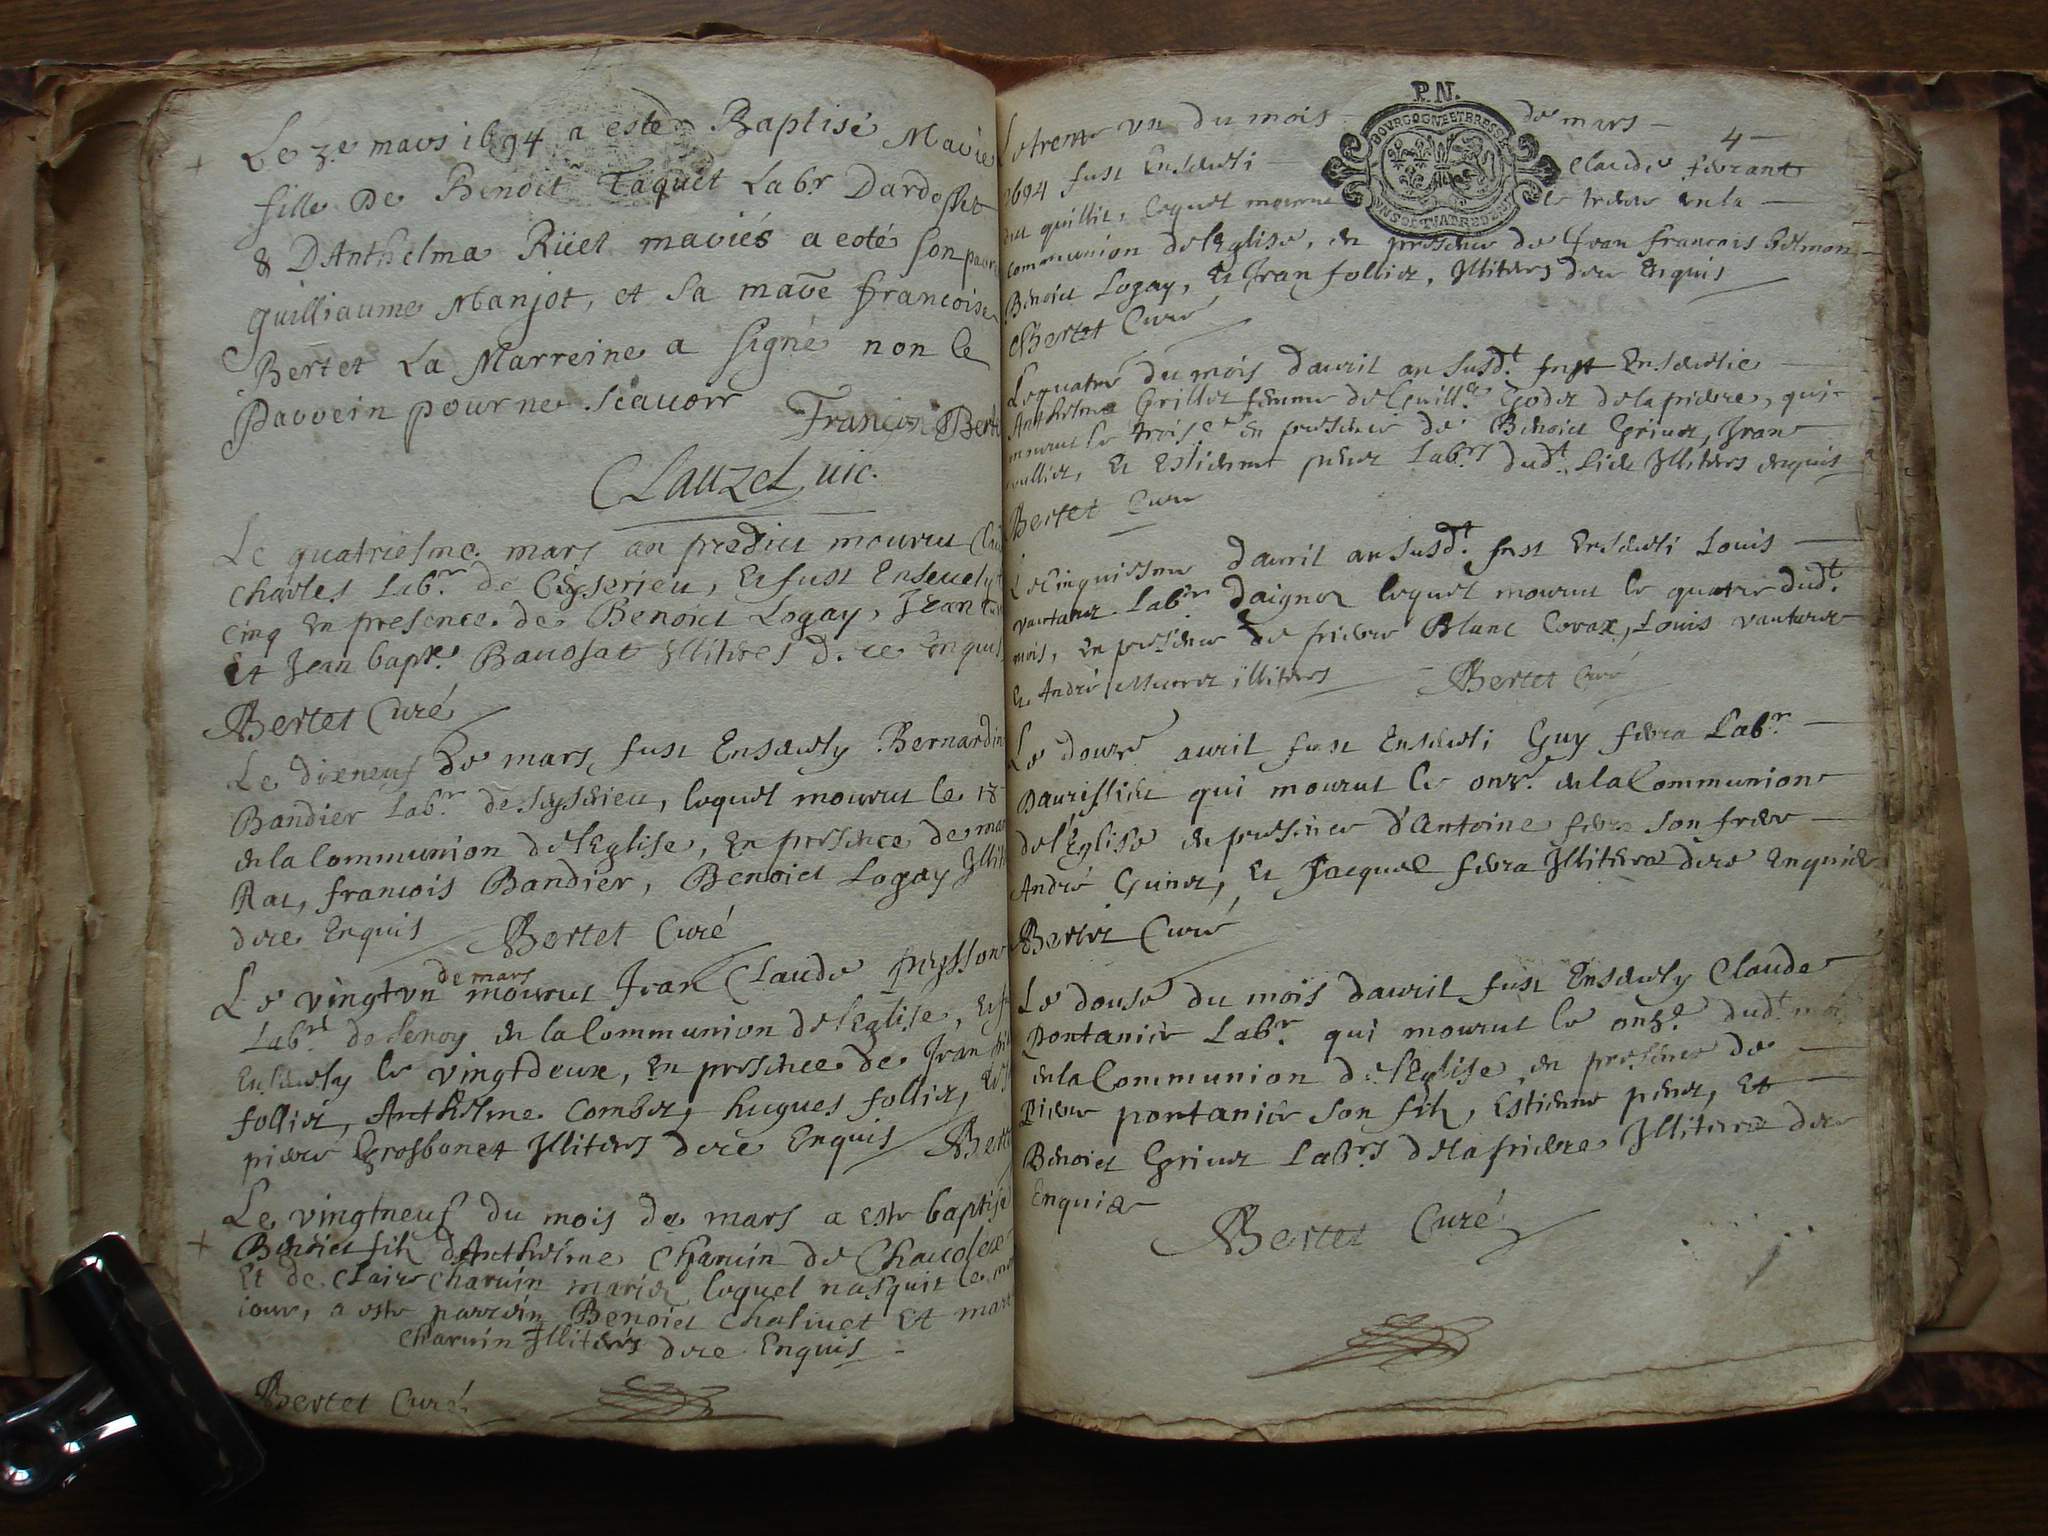 Le 3.e mars 1694 a esté Baptisé Marie
fille De Benoit Taquet Labr Dardosset
& DAnthelma Rüet mariés a eoté son parr
guilliaume Manjot, et sa mare francoise
Bertet La Marreine a signé non le
Parrein pour ne scauoir François Berte
Clauzel uic.
Le quatriesme mars an predict mourut
Charles Labr. de Ceyserieu, et fust Enseuely
cinq En presence de Benoict Logay, Jean
Et Jean bapt.e Illiteres de ce Enquis
Bertet Curé
Le dixneuf de mars, fust Enseuely Bernardin
Bandier Labr. de Ceyserieu, lequel mourut le 18
en la Communion de l'Eglise, En presence de
Rat, francois Bandier, Benoict Logay Illit
de ce Enquis Bertet Curé
Le vingtvn de mars mourut Jean Claude peysson
Labr. de lenoy en la Communion de l'Eglise, Et fu
Enseuely le vingtdeux, En presence de Jean
follier, Anthelme Combet, hugues follier, Et
pierre Grosbonet Illiteres de ce Enquis Bert
Le vingtneuf du mois de mars a este baptise
Benoict filz dAnthelme Charuin de
Et de Claire charuin mariés lequel nasquit le
iour, a este parrein Benoict Chaliuet Et mar
charuin Illiterés de ce Enquis
Bertet Curé
P.N.
BOVRGOGNE ET BRESSE
VN SOL QVATRE DEN
4
Le trente vn du mois de mars
1694 fust Enseueli Claude feurant
du quillit, lequel mourut le trente en la
communion de l'Eglise, en presence de Jean francois
Benoict Logay, Et Jean follier, Illiteres de ce Enquis
Bertet Curé
Le quatre du mois dauril an susd.t fust Enseuelie
Anthelma Grillet femme de Guill.e Godet de la pierre, qui
mourut le trois.e en presence de Benoict Grinet, Jean
vullier, Et Estienne penet Labrs dud.t lieu Illiteres enquis
Bertet Cure
Le Cinquiesme dauril an susd.t fust Enseueli Louis
vautaret Labr. daignoz lequel mourut le quatre dud.t
mois, En presence de pierre Blanc Corax, Louis vautaret
Et André Meuret illiteres Bertet Curé
Le douze auril fust Enseueli Guy feura Labr.
qui mourut le onze. en la Communion
de l'Eglise en presence d'Antoine feura son frere
André Guinet, Et Jacques feura Illiteres de ce Enquis
Bertet Curé
Le douse du mois dauril fust Enseuely Claude
pontanier Labr. qui mourut le onze dud.t mois
en la Communion de l'Eglise en presence de
pierre pontanier son filz, Estienne penet, Et
Benoict Grinet Labrs de la pierre Illiteres de ce
Enquis
Bertet Curé